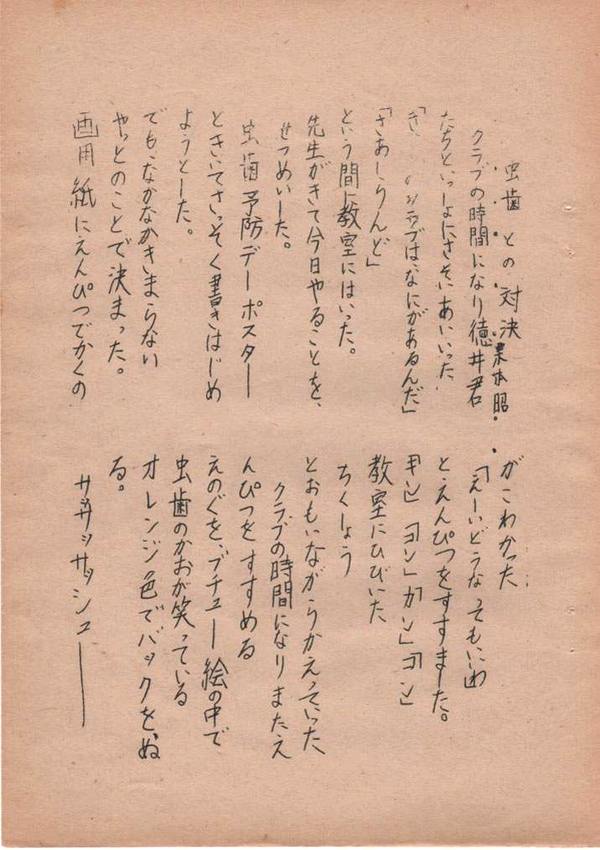 虫歯との対決
栗本昭
クラブの時間になり徳井君
たちといっしょにさそいあいいった
「き クラブは、なにがあるんだ」
「さあしりんど」
という間に教室にはいった。
先生がきて今日やることを、
せつめいした。
虫歯予防デーポスター
ときいてさっそく書きはじめ
ようとした。
でも、なかなかきまらない
やっとのことで決まった。
画用紙にえんぴつでかくの
がこわかった
「えーいどうなってもいいわ
と、えんぴつをすすました。
キンコンカンコン
教室にひびいた
ちくしょう
とおもいながらかえっていった
クラブの時間になりまたえ
んぴつをすすめる
えのぐを、ブチュー絵の中で
虫歯のかおが笑っている
オレンジ色でバックを、ぬ
る。
サッサッサッシュー――